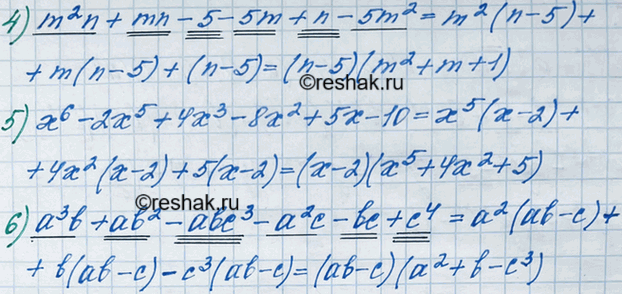 4) m²n + mn - 5 - 5m + n - 5m² = m²(n-5) +
+ m(n-5) + (n-5) = (n-5)(m²+m+1)
©reshak.ru
5) x⁶ - 2x⁵ + 4x³ - 8x² + 5x - 10 = x⁵(x-2) +
+ 4x²(x-2) + 5(x-2) = (x-2)(x⁵+4x²+5)
©reshak.ru
6) a³b + ab² - abc³ - a²c - bc + c⁴ = a²(ab-c) +
+ b(ab-c) - c³(ab-c) = (ab-c)(a²+b-c³)